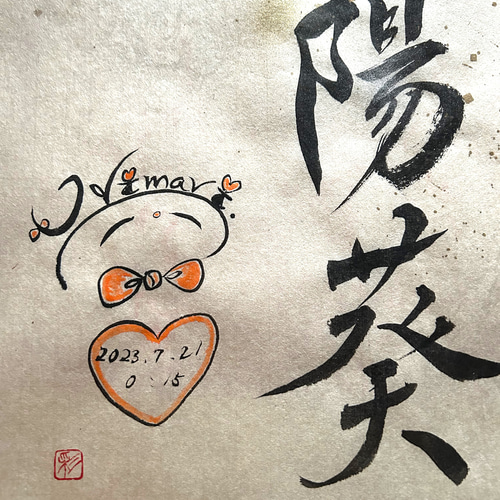 陽
葵
Himari
2023.7.21
0:15
彩